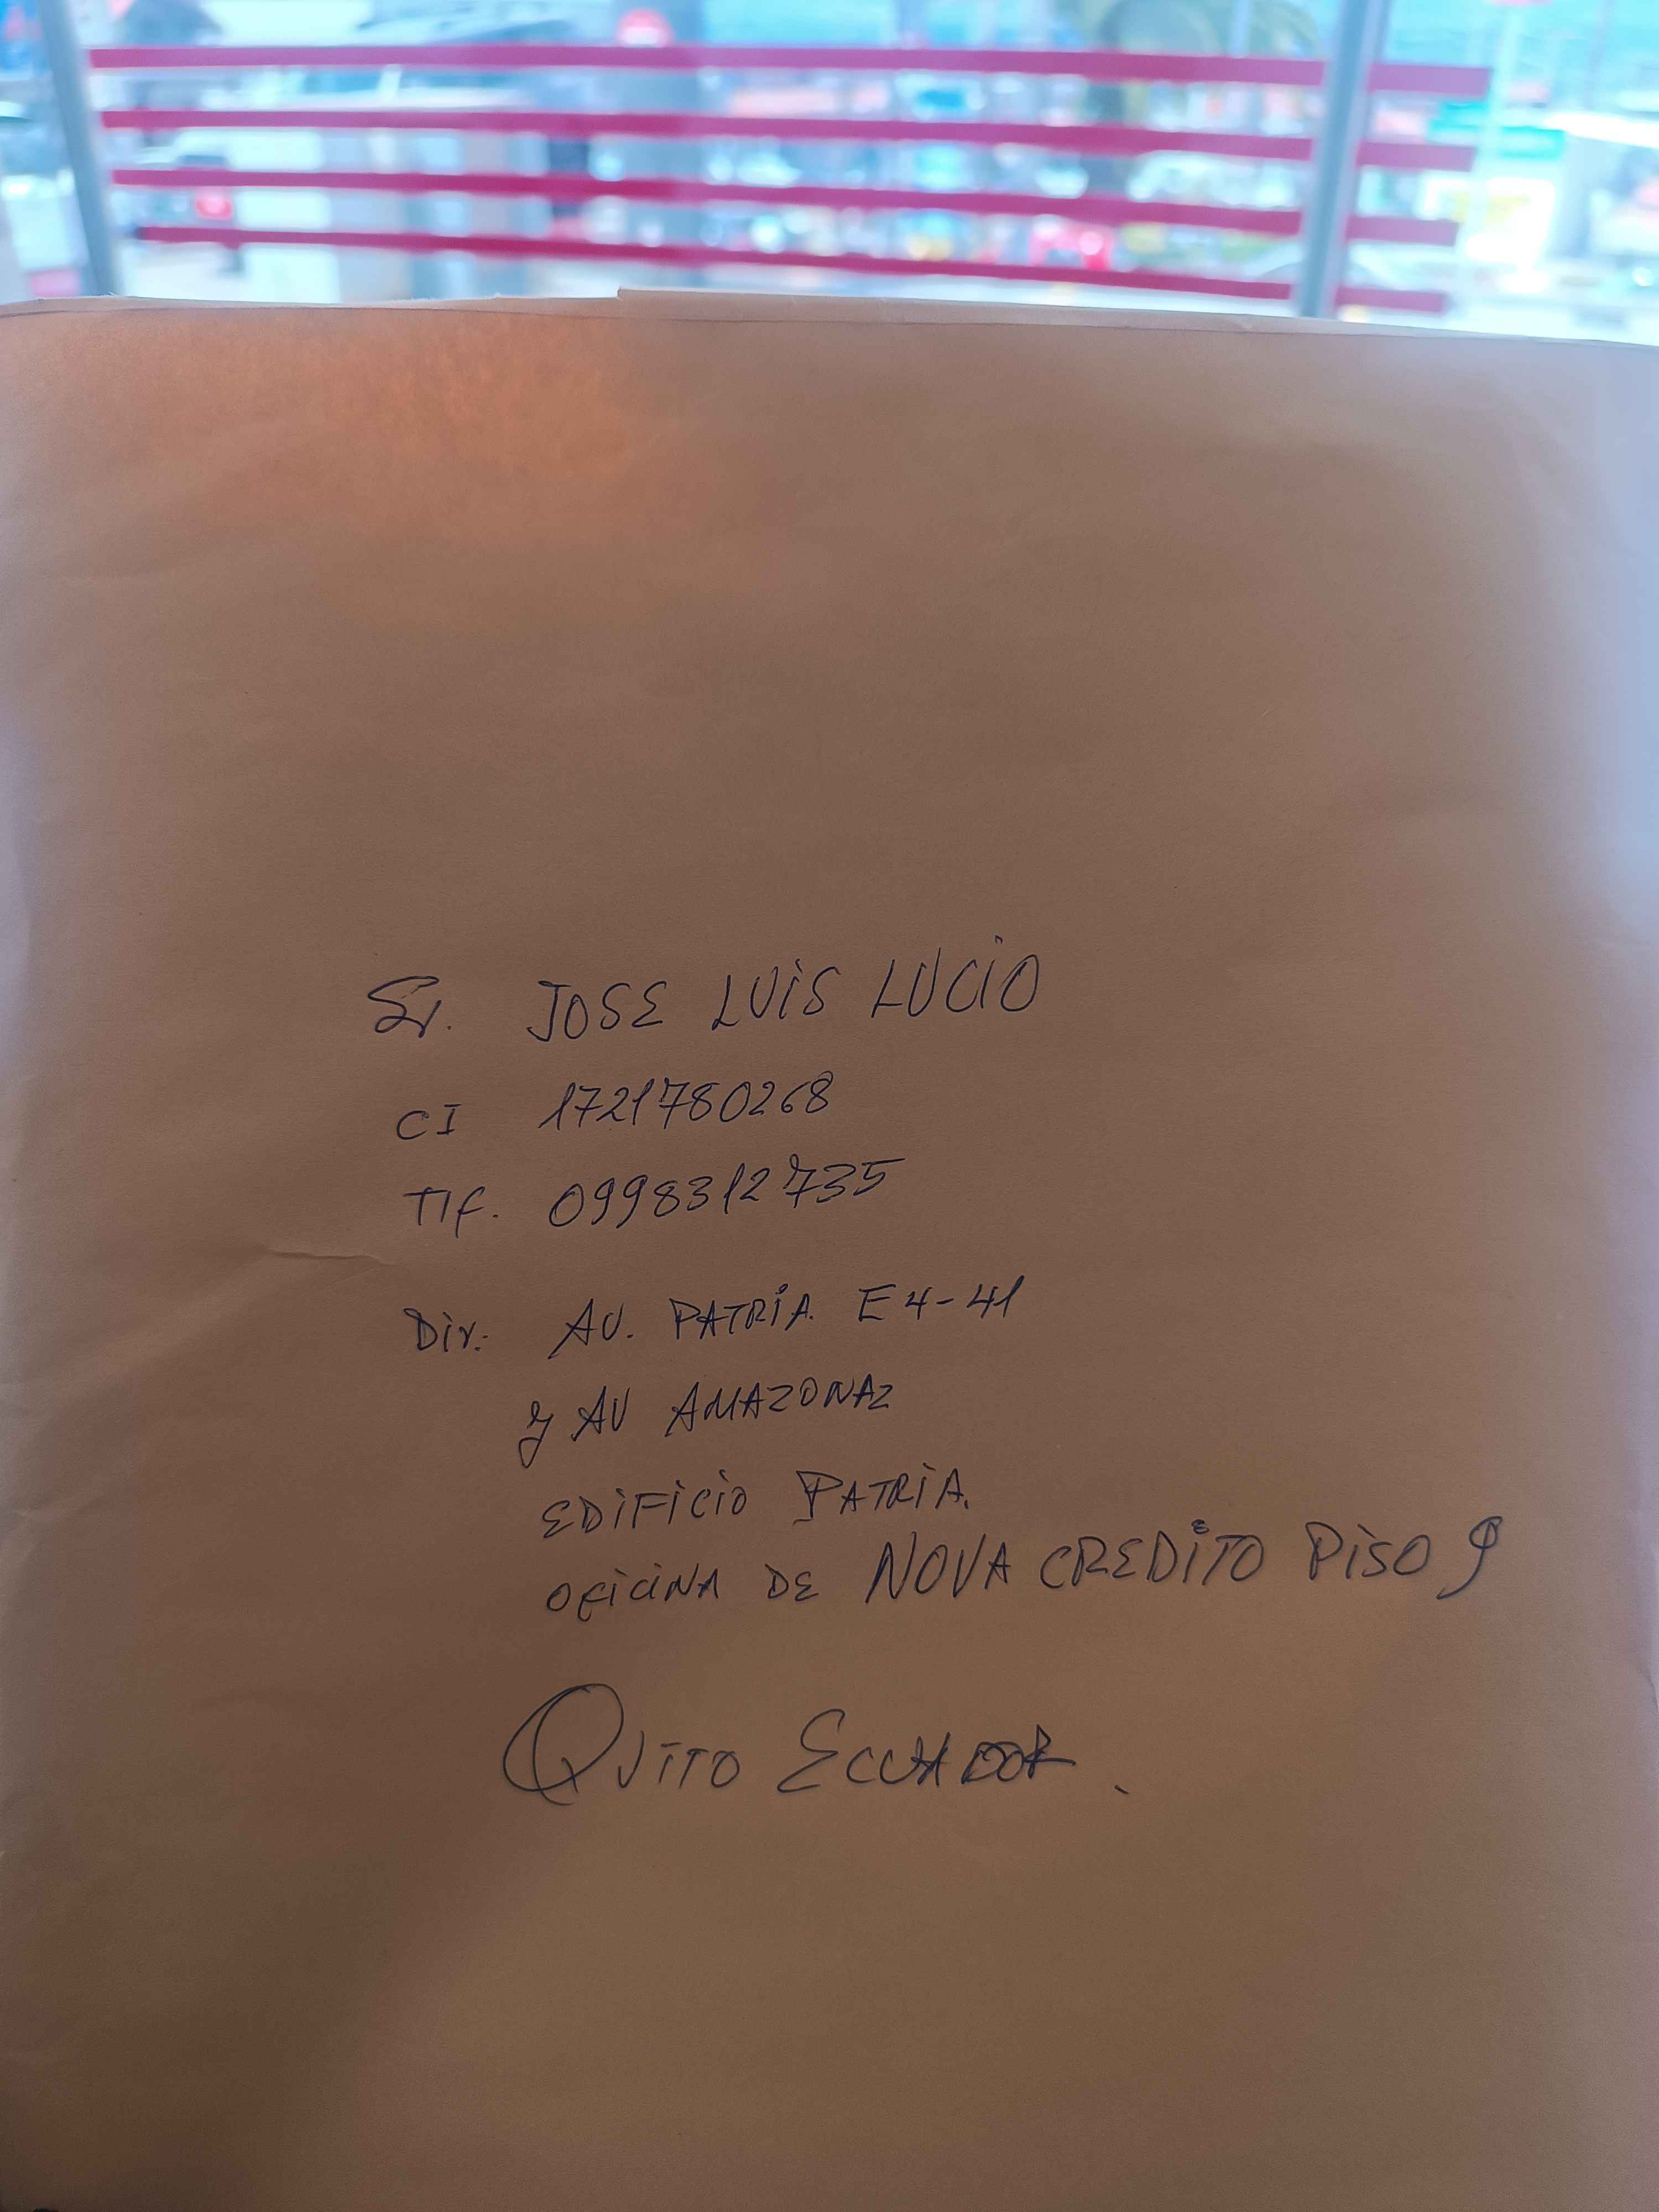 Sr. JOSE LUiS LUCiO
CI 1721780268
Tlf. 0998312735
Dir: AV. PATRiA E4-41
y AV AMAZONAZ
EDiFiCiO PATRiA.
OFiCiNA DE NOVA CREDiTO PiSO 9
QUiTO ECUADOR.